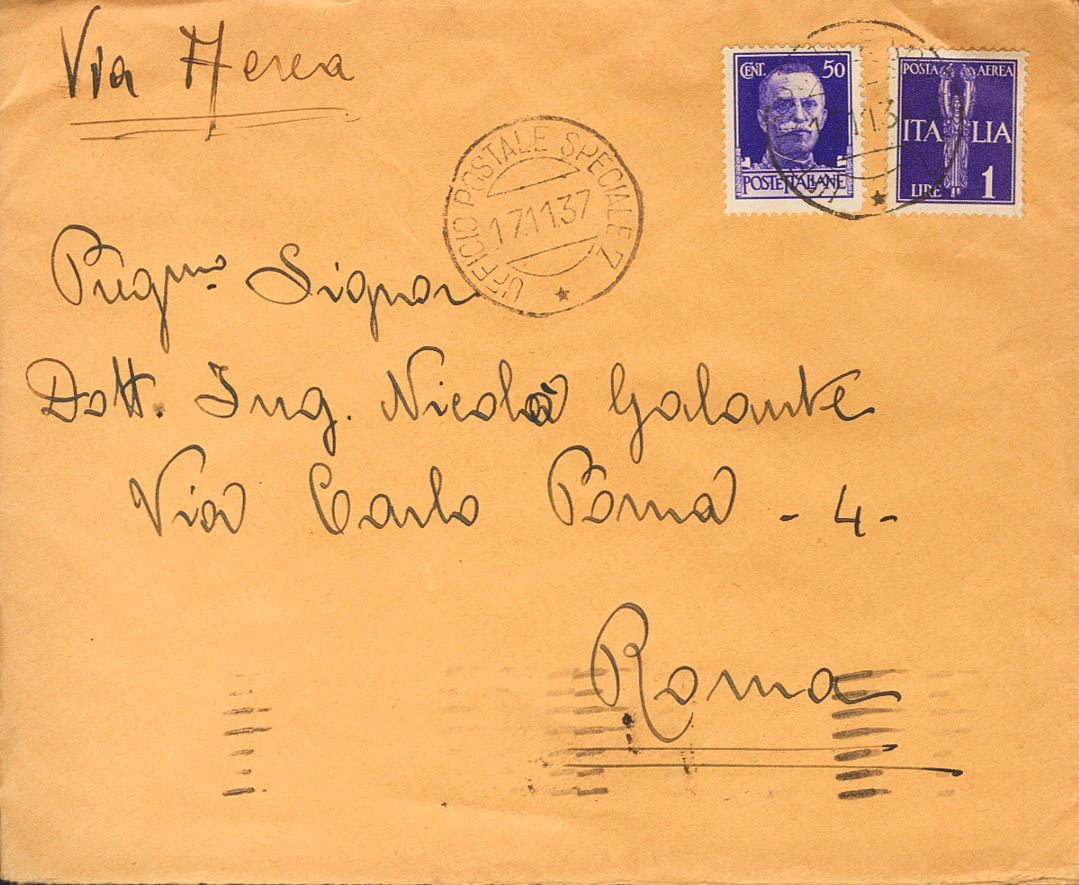 Via Aerea
CENT. 50
POSTE ITALIANE
POSTA AEREA
ITALIA
LIRE 1
UFFICIO POSTALE SPECIALE 7
17.11.37
Pregmo. Signor
Dott. Ing. Nicolò Galante
Via Carlo Poma - 4 -
Roma